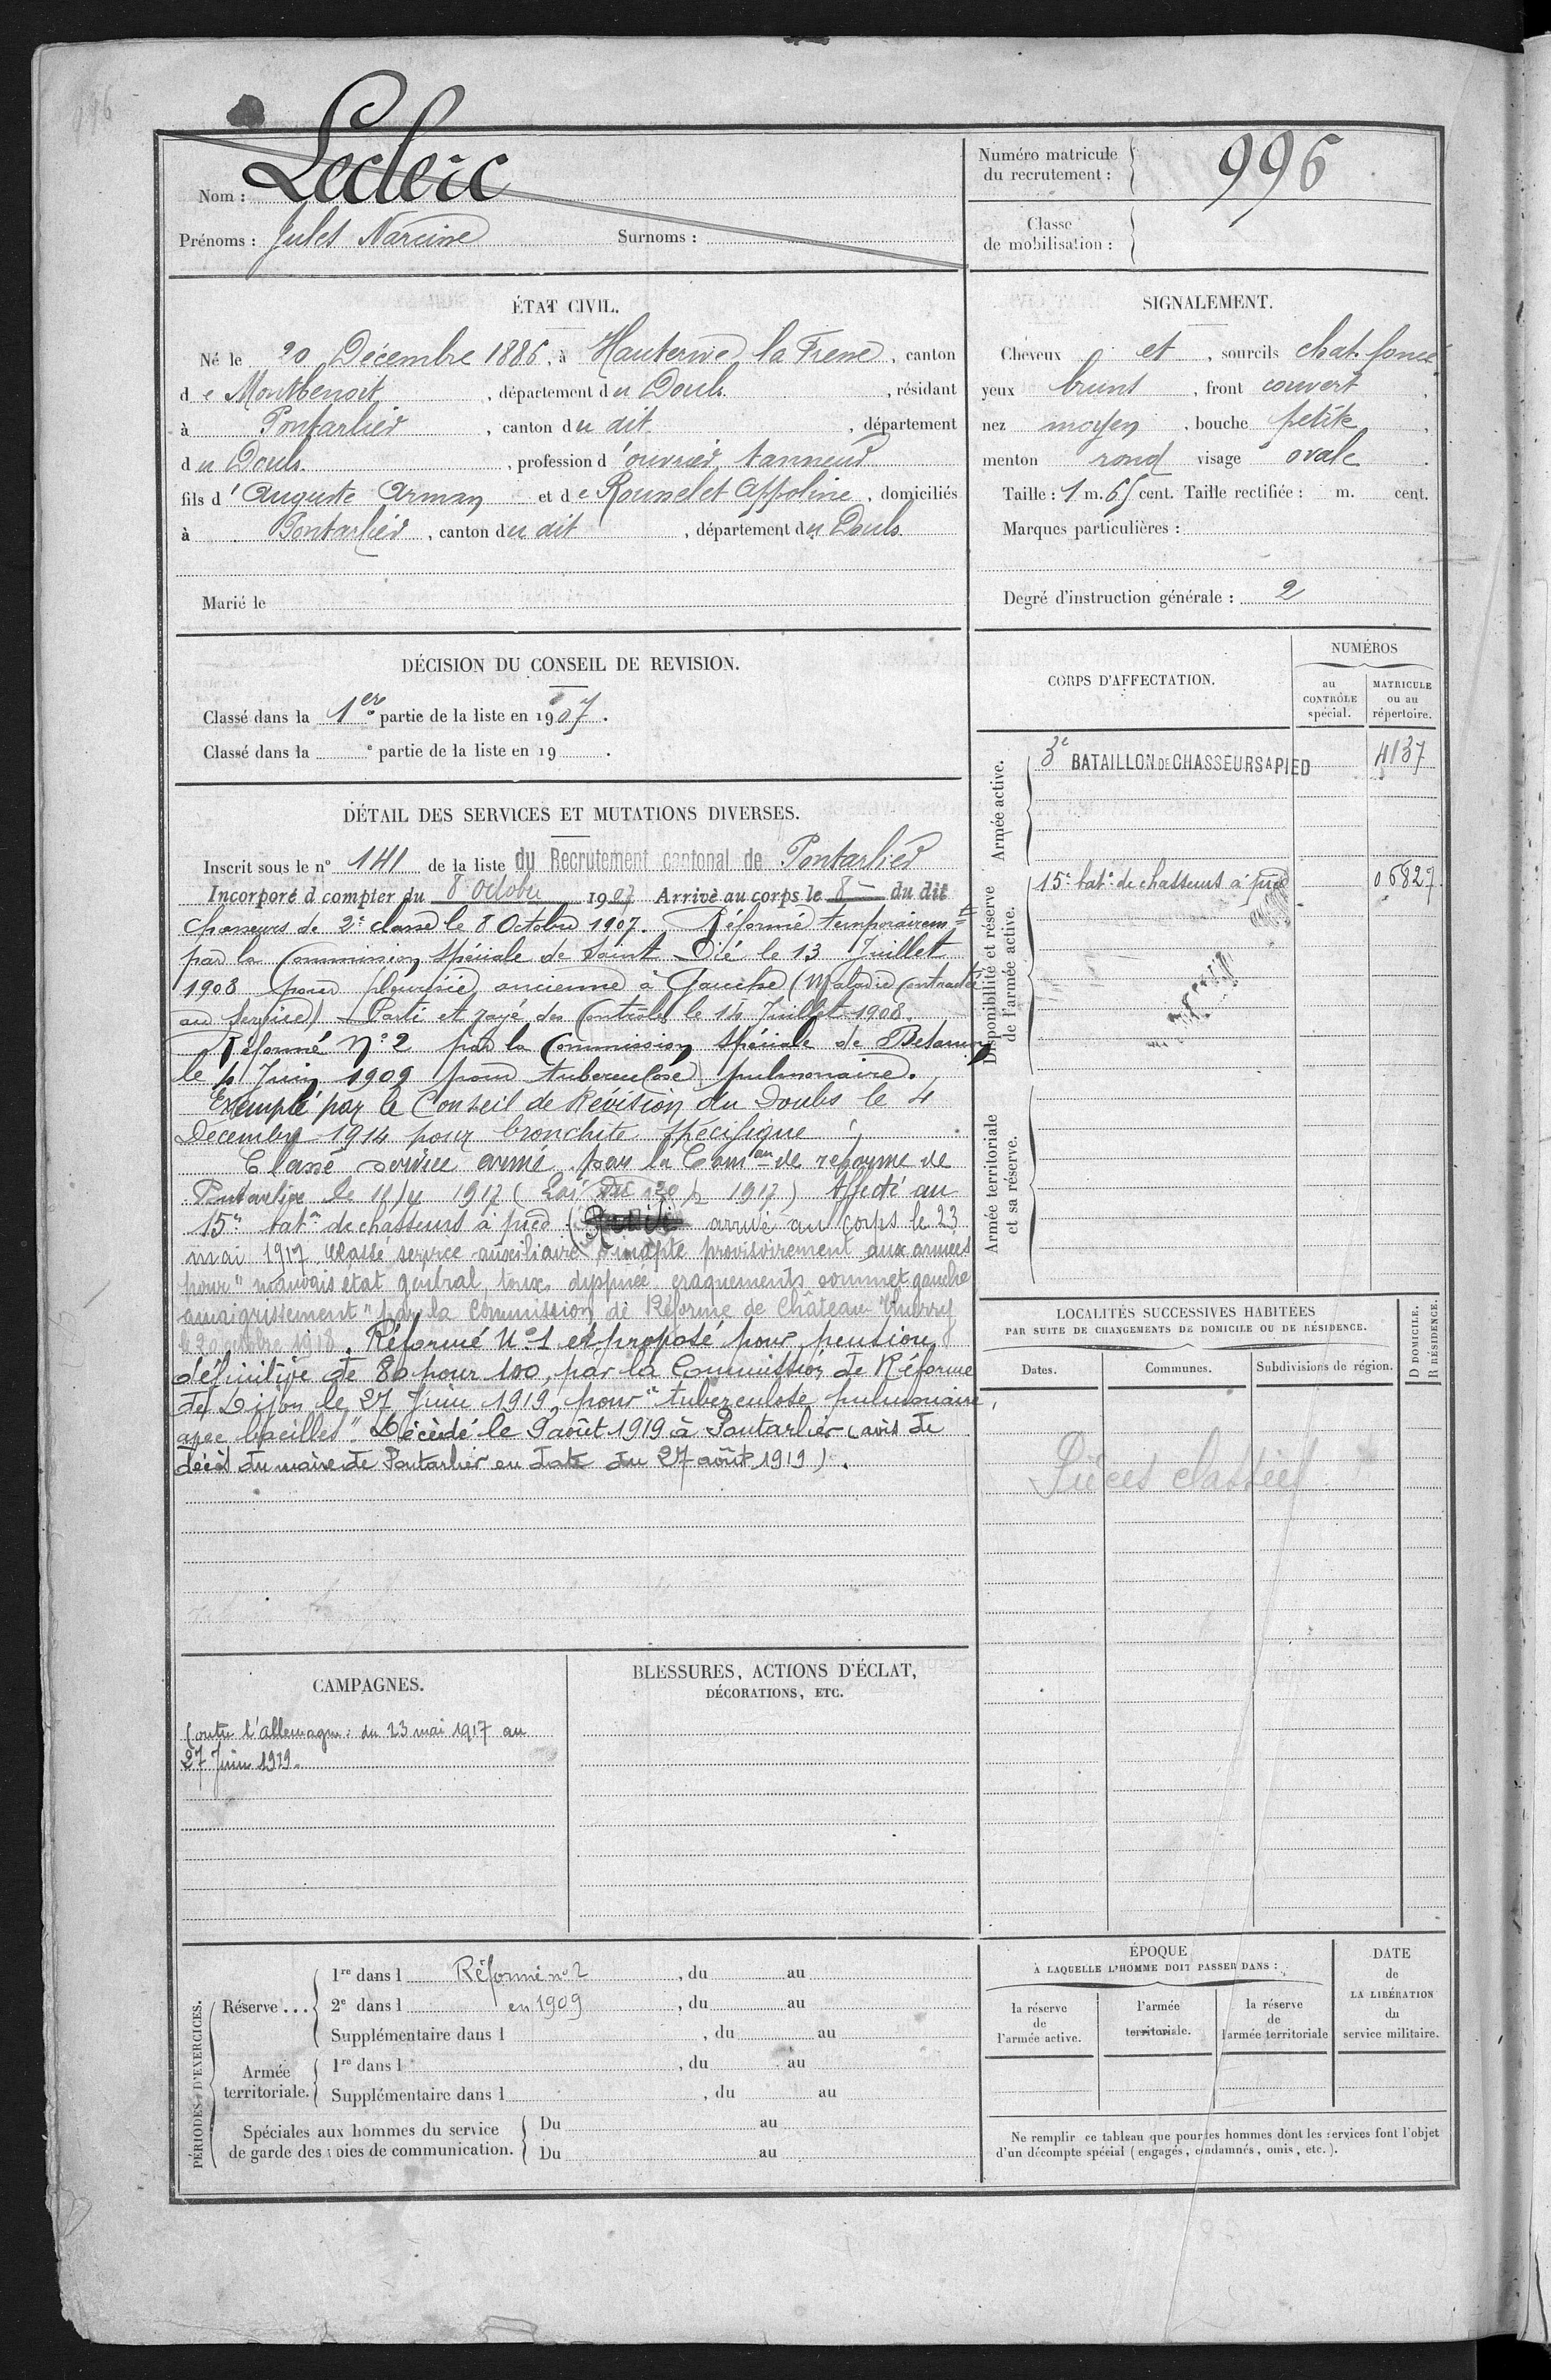 996
Leclerc
Nom :
Prénoms : Jules Narcisse Surnoms :
Numéro matricule du recrutement : 996
Classe de mobilisation :
ÉTAT CIVIL.
Né le 20 Décembre 1886, à Hauterive la Fresse, canton
de Montbenoit, département du Doubs, résidant
à Pontarlier, canton du dit, département
du Doubs, profession d'ouvrier tanneur
fils d'Auguste Arman et de Rousselet Appoline, domiciliés
à Pontarlier, canton du dit, département du Doubs
Marié le
SIGNALEMENT.
Cheveux et , sourcils chat. foncé
yeux bruns , front couvert ,
nez moyen , bouche petite ,
menton rond visage ovale .
Taille : 1 m. 65 cent. Taille rectifiée : m. cent.
Marques particulières :
Degré d'instruction générale : 2
DÉCISION DU CONSEIL DE REVISION.
Classé dans la 1ere partie de la liste en 1907.
Classé dans la e partie de la liste en 19 .
DÉTAIL DES SERVICES ET MUTATIONS DIVERSES.
Inscrit sous le n° 141 de la liste du Recrutement cantonal de Pontarlier
Incorporé à compter du 8 octobre 1907 Arrivé au corps le 8 du dit
Chasseurs de 2e classe le 8 Octobre 1907. Réformé temporairemt
par la Commission Spéciale de Saint Dié le 13 Juillet
1908 pour pleurésie ancienne à Gauche (Maladie Contractée
au Service) Parti et rayé des Contrôles le 14 Juillet 1908.
Réformé N° 2 par la Commission Spéciale de Besançon
le 4 Juin 1909 pour tuberculose pulmonaire.
Exempté par le Conseil de Révision du Doubs le 4
Décembre 1914 pour bronchite spécifique
Classé service armé par la Comon de réforme de
Pontarlier le 1917 (Loi du 20 2 1917) Affecté au
15e batn de chasseurs à pied ( arrivé au corps le 23
mai 1917. Classé service auxiliaire inapte provisoirement aux armées
pour "mauvais état général, toux, dyspnée craquements sommet gauche
amaigrissement" par la Commission de Réforme de Château-Thierry
le 20 octobre 1918. Réformé N° 1 et proposé pour pension
définitive de 80 pour 100, par la Commission de Réforme
de Dijon le 27 Juin 1919, pour "tuberculose pulmonaire
avec bacilles". Décédé le 9 août 1919 à Pontarlier (avis de
décès du maire de Pontarlier en date du 27 août 1919).
CORPS D'AFFECTATION.
NUMÉROS
au CONTRÔLE spécial.
MATRICULE ou au répertoire.
Armée active.
3e BATAILLON DE CHASSEURS A PIED 4137
Disponibilité et réserve de l'armée active.
15e batn de chasseurs à pied 06827
Armée territoriale et sa réserve.
LOCALITÉS SUCCESSIVES HABITÉES
PAR SUITE DE CHANGEMENTS DE DOMICILE OU DE RÉSIDENCE.
Dates. Communes. Subdivisions de région. D DOMICILE. R RÉSIDENCE.
Pièces classées
CAMPAGNES.
Contre l'allemagne : du 23 mai 1917 au
27 Juin 1919.
BLESSURES, ACTIONS D'ÉCLAT,
DÉCORATIONS, ETC.
PÉRIODES D'EXERCICES.
Réserve ...
1re dans l Réformé n° 2 , du au
2e dans l en 1909 , du au
Supplémentaire dans l , du au
Armée territoriale.
1re dans l , du au
Supplémentaire dans l , du au
Spéciales aux hommes du service
de garde des voies de communication.
Du au
Du au
ÉPOQUE
À LAQUELLE L'HOMME DOIT PASSER DANS :
la réserve de l'armée active.
l'armée territoriale.
la réserve de l'armée territoriale
DATE de LA LIBÉRATION du service militaire.
Ne remplir ce tableau que pour les hommes dont les services font l'objet
d'un décompte spécial (engagés, condamnés, omis, etc.).